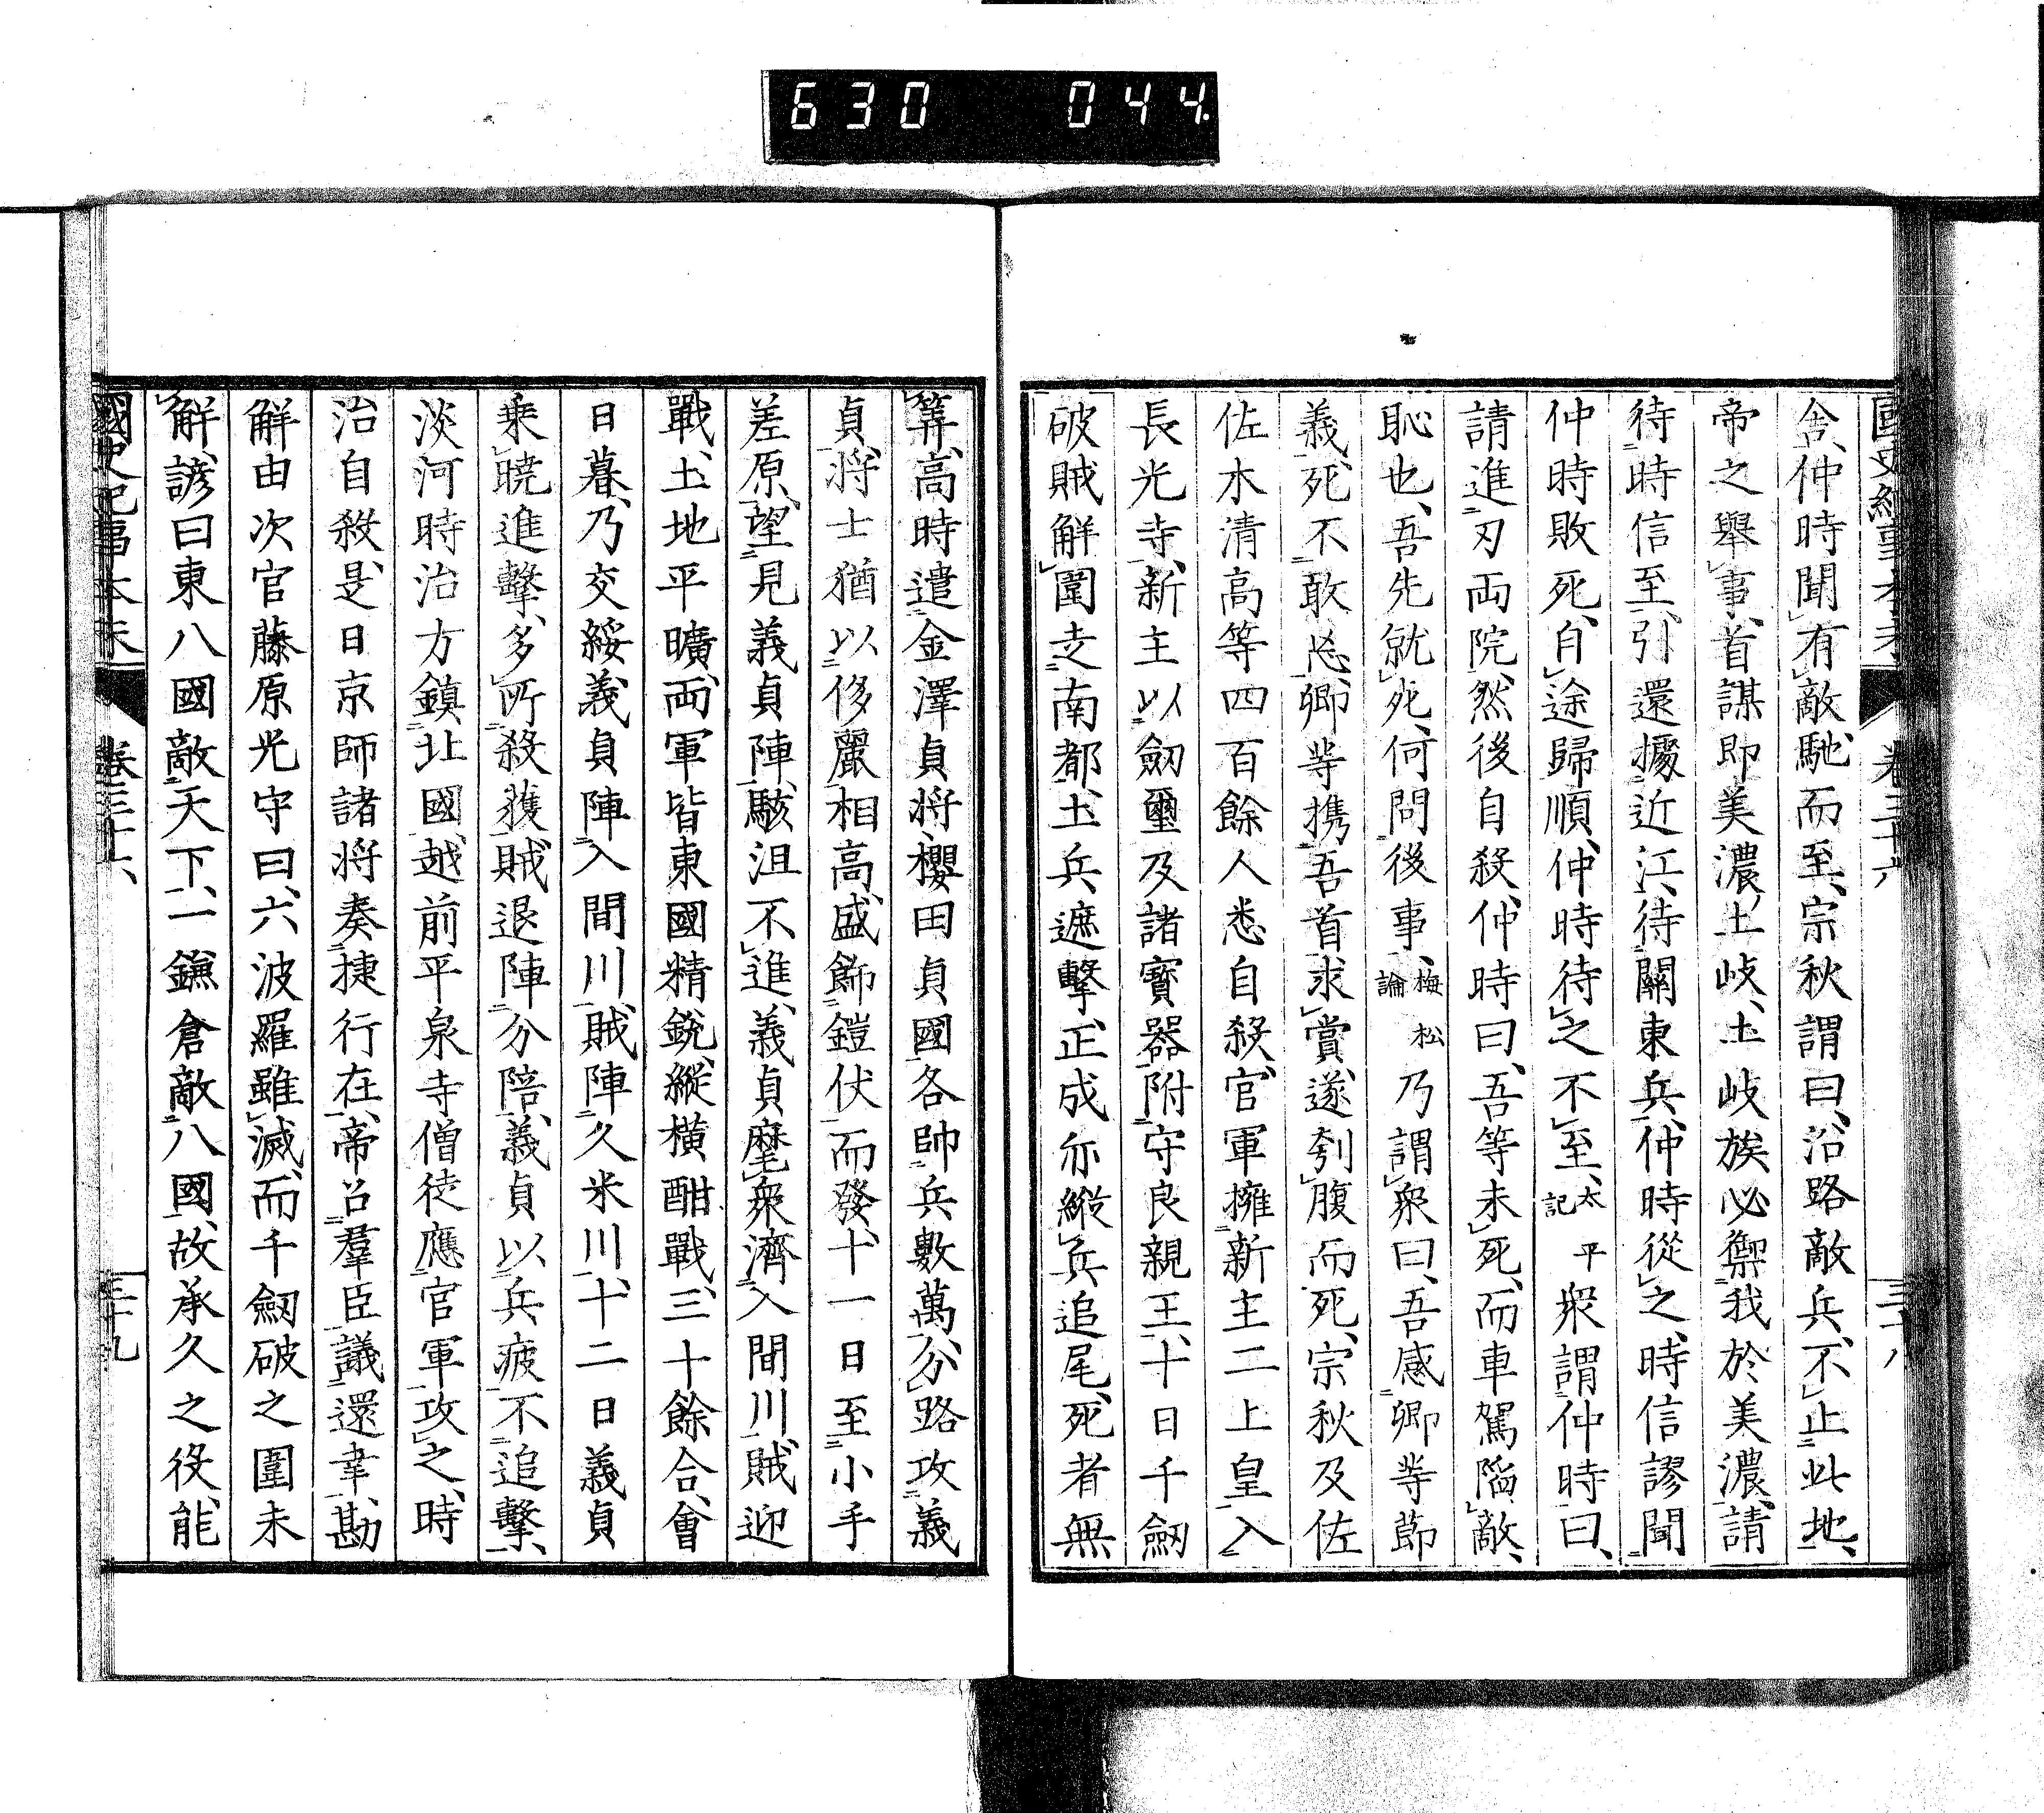 630 044.
國史紀事本末 卷三十六 三十八
舎、仲時聞有敵、馳而至、宗秋謂曰、沿路敵兵、不止此地、
帝之舉事、首謀即美濃土岐、土岐族必禦我於美濃、請
待時信至、引還據近江、待關東兵、仲時從之、時信謬聞
仲時敗死、自途歸順、仲時待之不至、太平記衆謂仲時曰、
請進刃両院、然後自殺、仲時曰、吾等未死、而車駕陷敵、
恥也、吾先就死、何問後事、梅松論乃謂衆曰、吾感卿等節
義、死不敢忘、卿等携吾首求賞、遂刳腹而死、宗秋及佐
佐木清高等四百餘人悉自殺、官軍擁新主二上皇入
長光寺、新主以劒璽及諸寶器附守良親王、十日千劒
破賊解圍走南都、土兵遮擊、正成亦縱兵追尾、死者無
算、高時遣金澤貞将、櫻田貞國、各帥兵數萬、分路攻義
貞、将士猶以侈麗相高、盛飾鎧伏而發、十一日至小手
差原、望見義貞陣、駭沮不進、義貞麾衆濟入間川、賊迎
戰、土地平曠、両軍皆東國精銳、縱横酣戰、三十餘合、會
日暮、乃交綏、義貞陣入間川、賊陣久米川、十二日義貞
乗曉進擊、多所殺獲、賊退陣分陪、義貞以兵疲不追擊、
淡河時治方鎮北國、越前平泉寺僧徒應官軍攻之、時
治自殺、是日京師諸将奏捷行在、帝召羣臣議還幸、勘
解由次官藤原光守曰、六波羅雖滅、而千劒破之圍未
解、諺曰東八國敵天下、一鎌倉敵八國、故承久之役、能
國史紀事本末 卷三十六 三十九